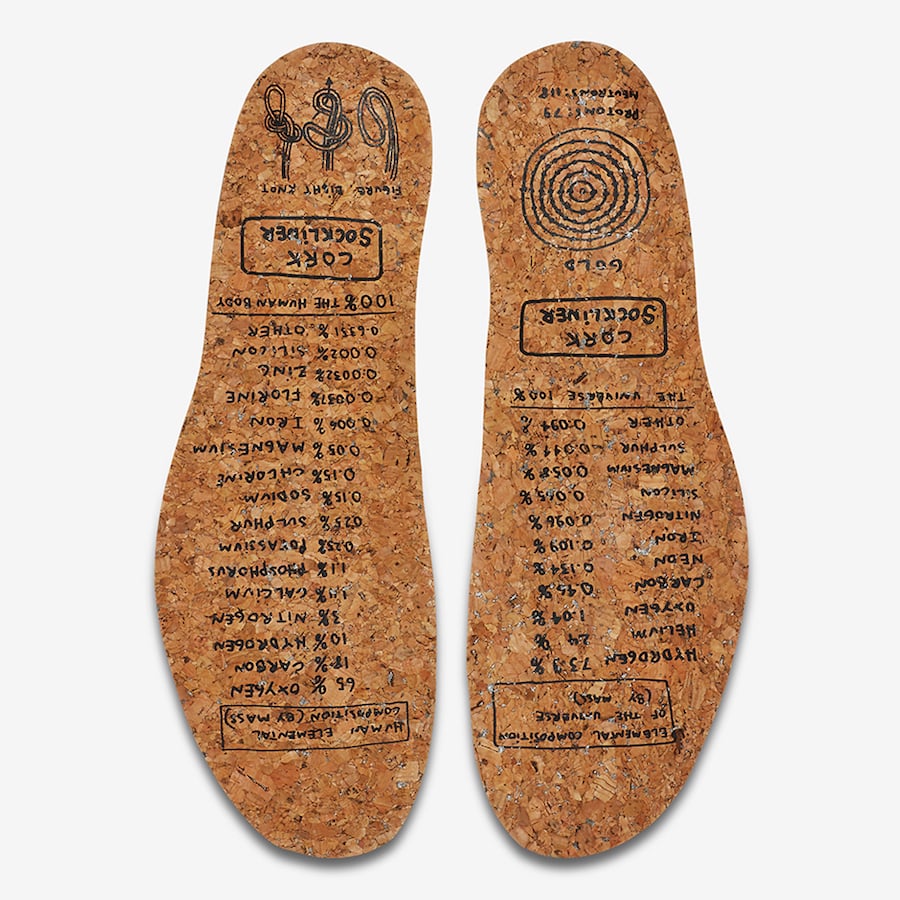 ELEMENTAL COMPOSITION
OF THE UNIVERSE
(BY MASS)
HYDROGEN 73.9 %
HELIUM 24 %
OXYGEN 1.04 %
CARBON 0.45 %
NEON 0.134 %
IRON 0.109 %
NITROGEN 0.096 %
SILICON 0.065 %
MAGNESIUM 0.058 %
SULPHUR 0.044 %
OTHER 0.094 %
THE UNIVERSE 100%
CORK
SOCKLINER
GOLD
PROTONS:79
NEUTRONS:118
HUMAN ELEMENTAL
COMPOSITION (BY MASS)
65 % OXYGEN
18 % CARBON
10 % HYDROGEN
3 % NITROGEN
1.4 % CALCIUM
1.1 % PHOSPHORUS
0.25 % POTASSIUM
0.25 % SULPHUR
0.15 % SODIUM
0.15 % CHLORINE
0.05 % MAGNESIUM
0.006 % IRON
0.0037 % FLORINE
0.0032 % ZINC
0.002 % SILICON
0.6351 % OTHER
100% THE HUMAN BODY
CORK
SOCKLINER
FIGURE EIGHT KNOT